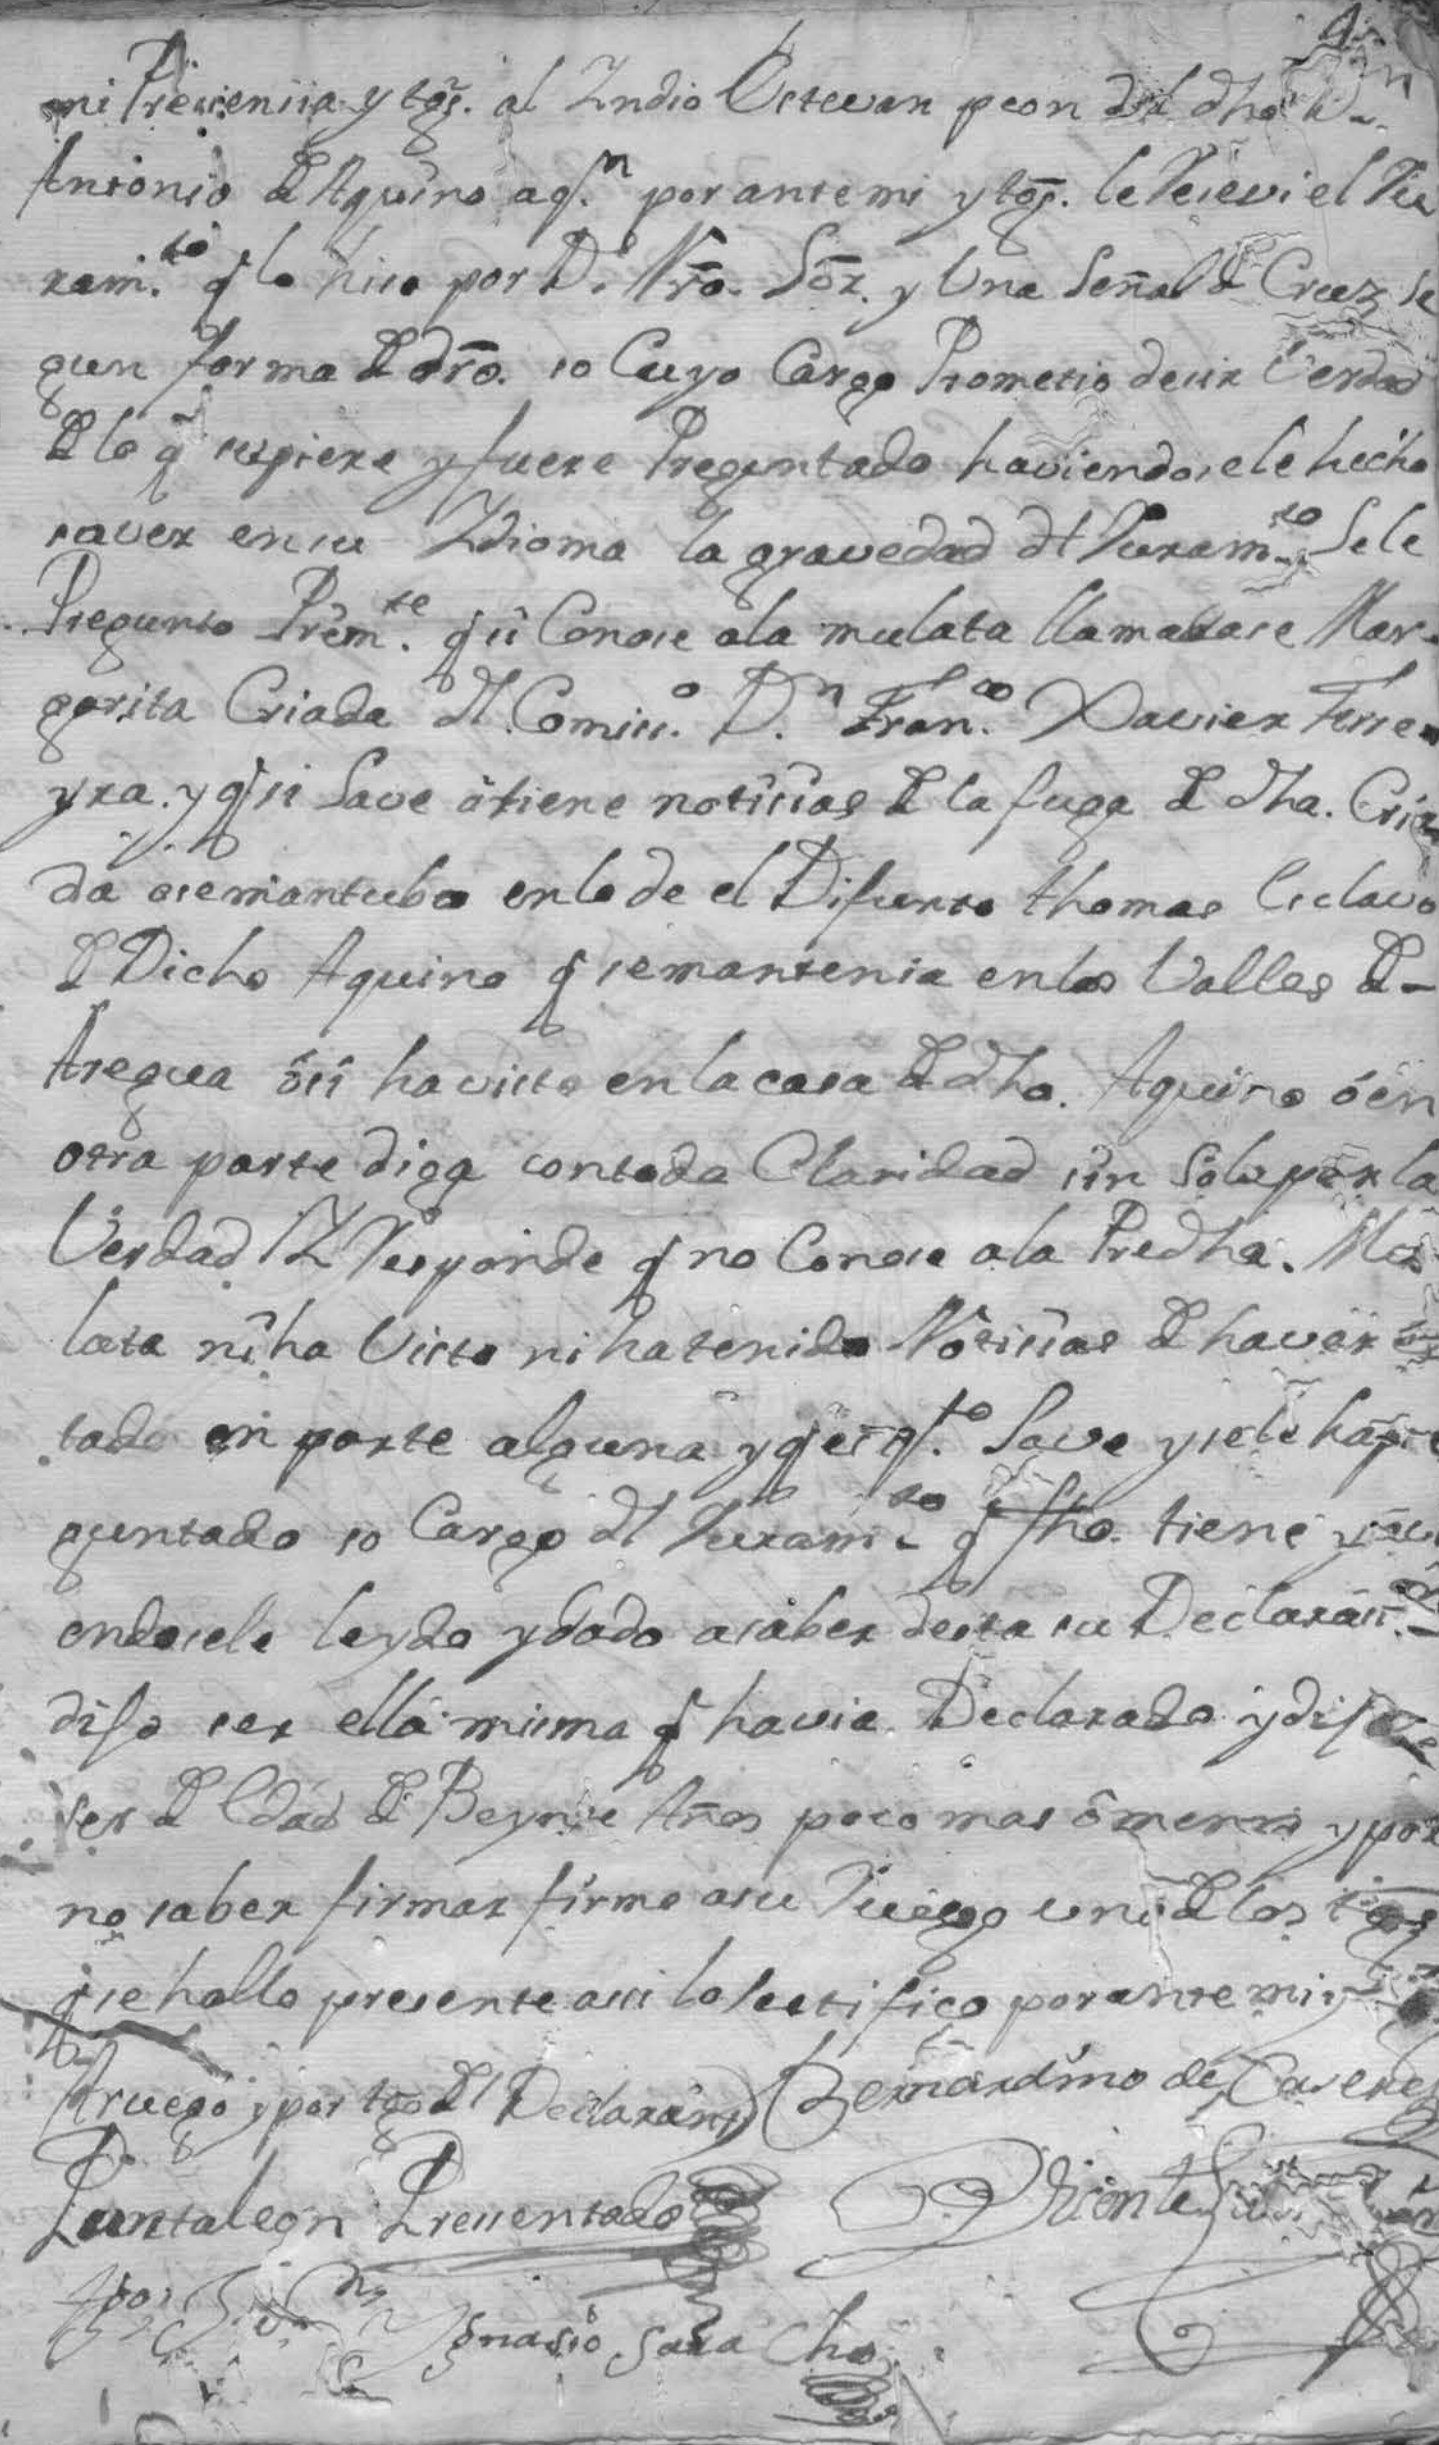 mi Presencia y tgs. al Yndio Estevan peon del dho Dn
Antonio de Aquino aq.n por ante mi y tgs. le Recevi el Ju
ram.to q lo hiso por D.s Nrō. Sōr. y Una Señal de Cruz se
gun forma de drō. so Cuyo Cargo Prometio desir Verdad
de lo q supiere y fuere Preguntado haviendosele hecho
saver en su Ydioma la gravedad del Juram.to Se le
Pregunto Prêm.te q si Conose ala mulata llamadase Mar-
garita Criada del Comiss.o D.n Fran.co Xavier Ferre
yra. y q si Save o tiene notisias de la fuga de dha. Cria
da o se mantubo en lo de el Difunto thomas Esclavo
de Dicho Aquino q se mantenia en los Valles de
Aregua o si ha visto en la casa de dho. Aquino o en
otra parte diga con toda Claridad sin Solapar la
Verdad Y Responde q no Conose ala Predha. Mu
lata ni ha Visto ni ha tenido Notisias de haver es
tado en parte alguna y q es q.to Save y se le ha pre
guntado so Cargo del Juram.to q fho. tiene y havi
endosele leydo y dado a saber desta su Declaras.n
dijo ser ella misma q havia Declarado y dijo
ser de Edad de Beynte Años poco mas o menos y por
no saber firmar firmo a su Ruego uno de los tgs
q se hallo presente assi lo sertifico por ante mi y
Aruego y por tgo del Declarante Bernardino de Caseres
Pantaleon Pressentado Vicente
Ygnasio Sara Cho